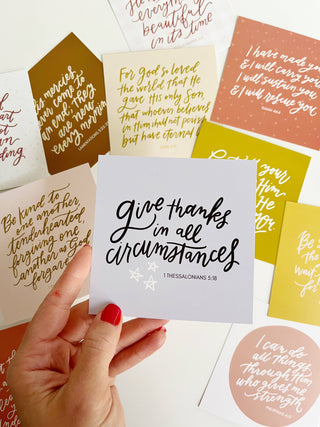 everything
beautiful
in its time
I have made you
& I will carry you
I will sustain you
& I will rescue you
his mercies
never come to
an end they
are new
every morning
For God so loved
the world that He
gave His only Son,
that whoever believes
in Him shall not perish
but have eternal
your
Him
He
for
give thanks
in all
circumstances
1 THESSALONIANS 5:18
Be kind to
one another
tenderhearted,
forgiving one
another as God
forgave
Be
the
wait
for
I can do
all things
through Him
who gives me
strength